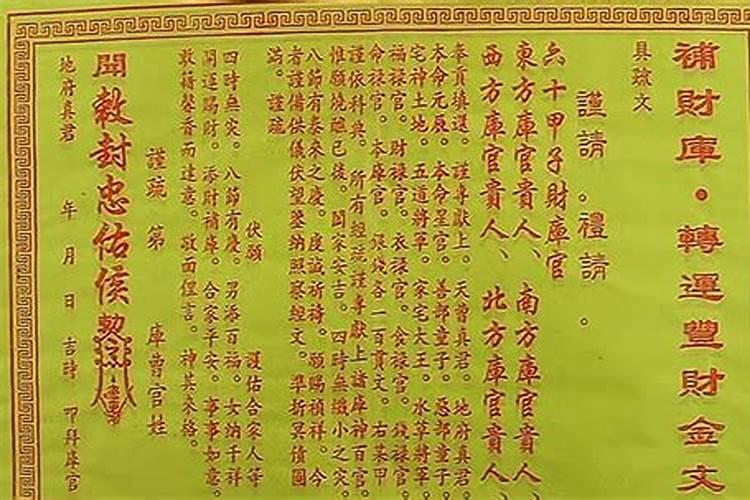 補財庫。轉運豐財金文
具疏文
謹請。禮請。
六十甲子財庫官
東方庫官貴人、南方庫官貴人、
西方庫官貴人、北方庫官貴人、
奉頁填還。謹專獻上。天曹真君。地府真君。
本命元辰。本命星官。善部童子。惡部童子。
宅神土地。五道將軍。家宅大王。水草將軍。
福祿官。財祿官。衣祿官。食祿官。錢祿官。
命祿官。本庫官。銀錢各一百貫文。右某甲
謹依科典。所有經疏謹專獻上諸庫神百官。
惟願燒醮已後。閤家安吉。四時無纖小之災。
八節有泰來之慶。虔誠所禱。願賜禎祥。今
者謹備供儀伏望鑒納照察經文。準折冥債圓
滿。謹疏
伏願 護佑合家人等
四時無災。八節有慶。男添百福。女納千祥
開運賜財。添財補庫。合家平安。事事如意。
敢藉馨香而達意。敬面俚言。神其來格。
謹疏 第 庫曹官姓
開敕封忠佑侯
地府真君 年 月 日 吉時 叩拜庫官